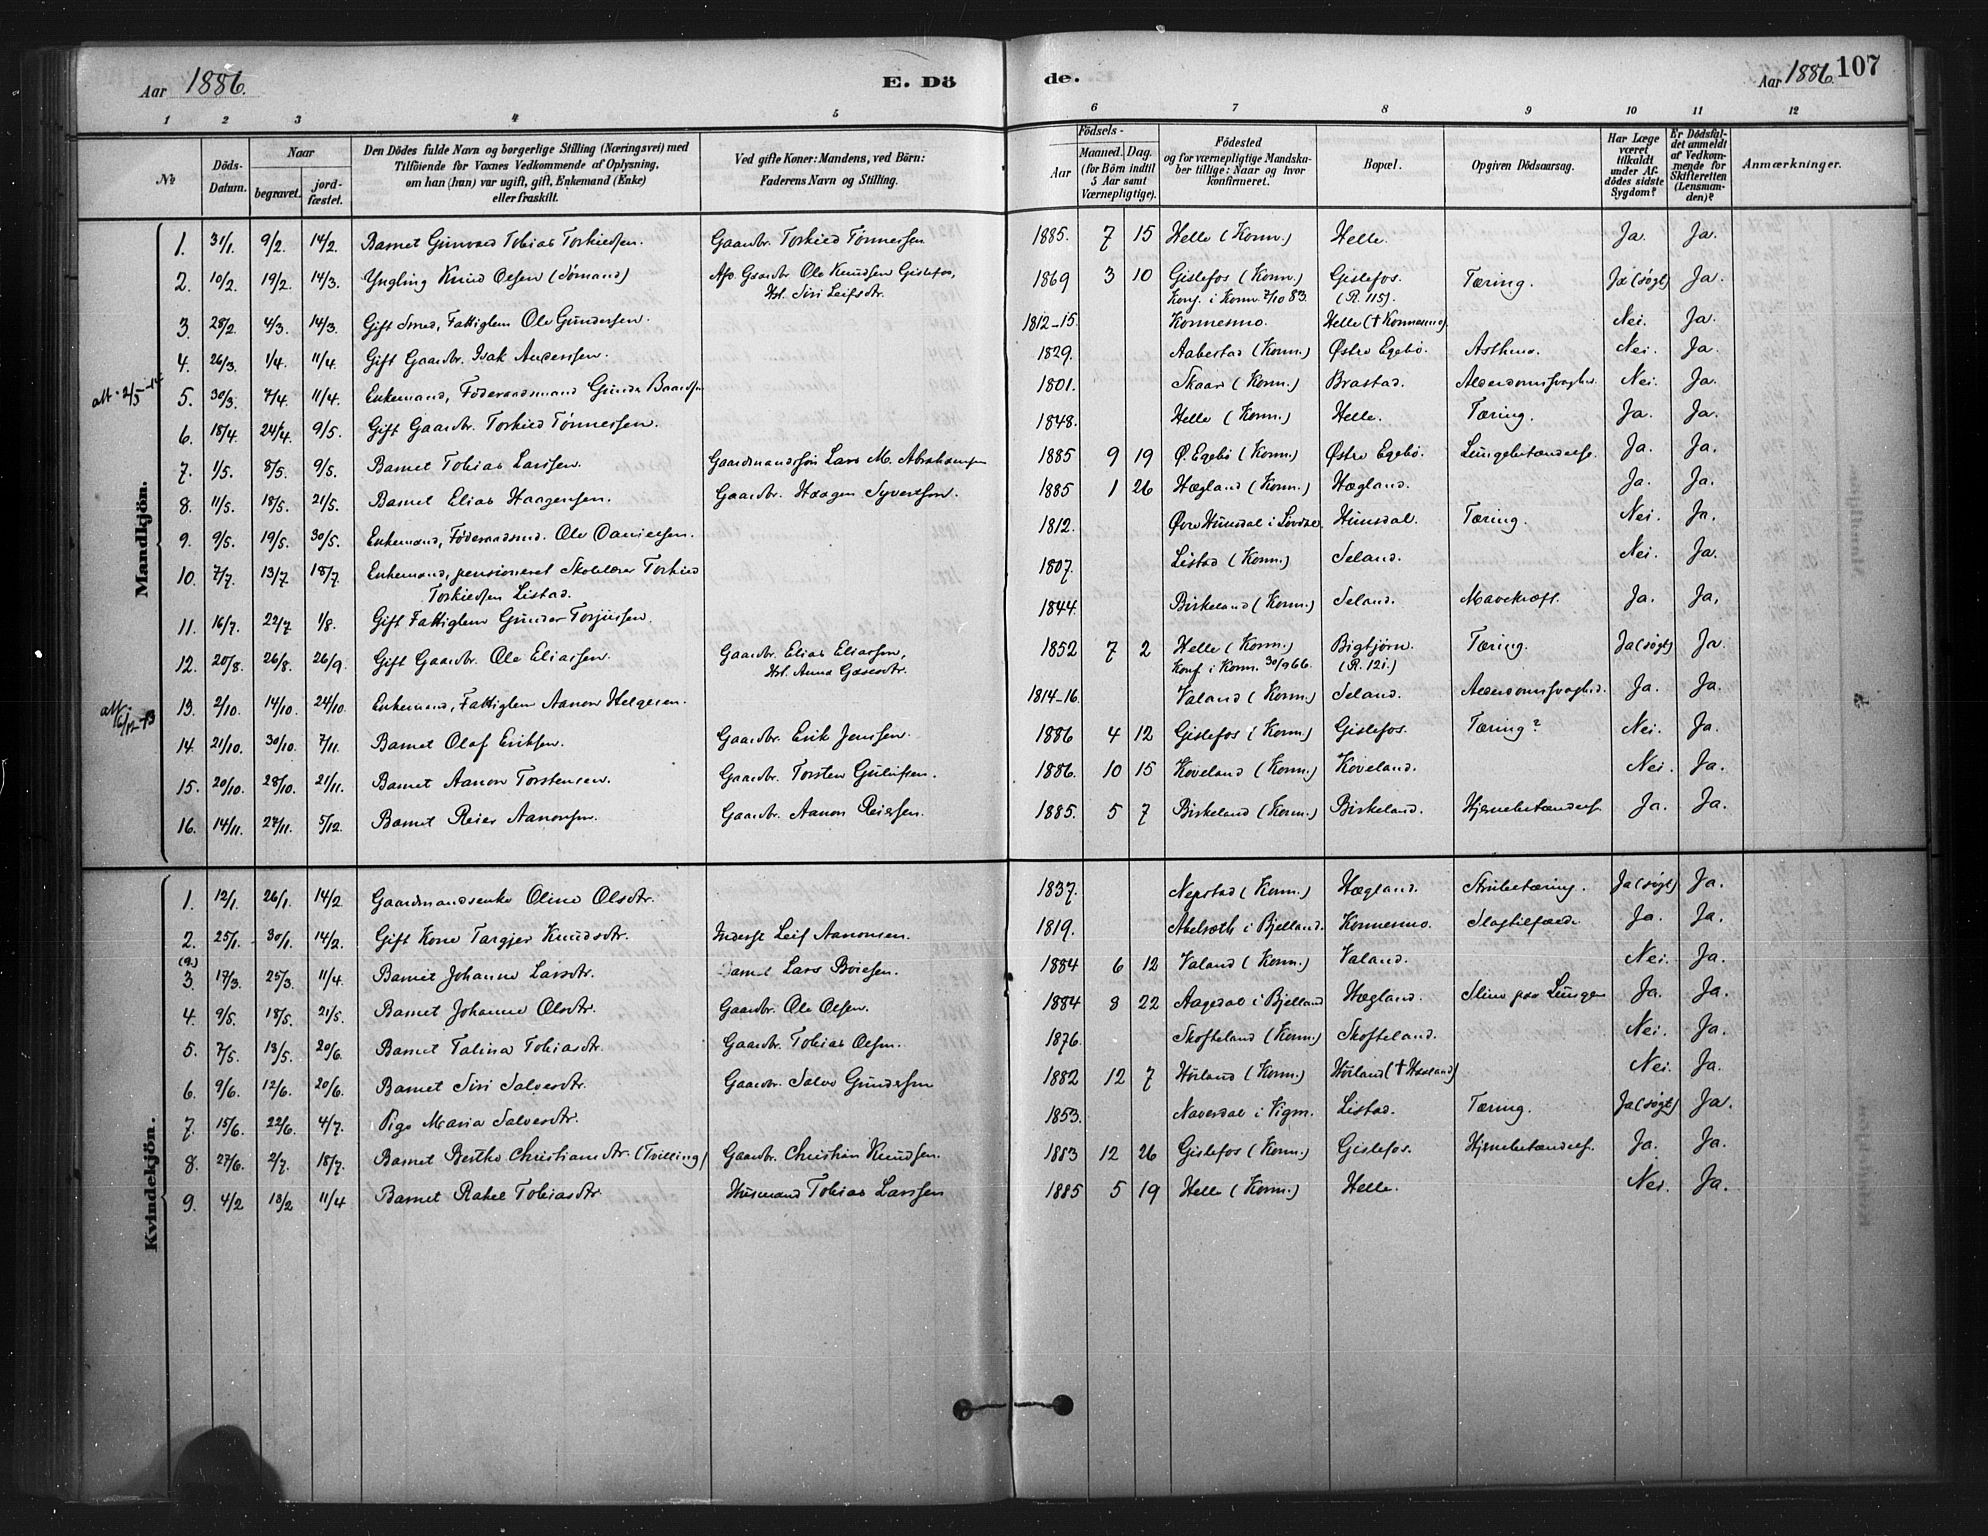 Aar 1886. E. Dö de. Aar 1886. 107
1 2 3 4 5 6 7 8 9 10 11 12
№ Döds-Datum. Naar begravet. jord-fæstet. Den Dödes fulde Navn og borgerlige Stilling (Næringsvei) med Tilföiende for Voxnes Vedkommende af Oplysning, om han (hun) var ugift, gift, Enkemand (Enke) eller fraskilt. Ved gifte Koner: Mandens, ved Börn: Faderens Navn og Stilling. Födsels- Aar Maaned. Dag. (for Börn indtil 5 Aar samt Værnepligtige). Födested og for værnepligtige Mandskaber tillige: Naar og hvor konfirmeret. Bopæl. Opgiven Dödsaarsag. Har Læge været tilkaldt under Afdödes sidste Sygdom? Er Dödsfaldet anmeldt af Vedkommende for Skifteretten (Lensmanden)? Anmærkninger.
Mandkjön.
1. 31/1. 9/2. 14/2. Barnet Gunvald Tobias Torkildsen. Gaardbr. Torkild Tönnessen 1885. 7 15 Helle (Konm.) Helle. Ja. Ja.
2. 10/2. 19/2. 14/3. Yngling Knud Olsen (Sömand) Afd. Gaardbr. Ole Knudsen Gislefos, 1869 3 10 Gislefos (Konm.) Gislefos. Tæring. Ja (søgt) Ja.
Hst. Siri Leifsdtr. Konf. i Konm. 7/10 83. (R. 115).
3. 28/2. 4/3. 14/3. Gift Smed, Fattiglem Ole Gundersen. 1812-15. Konnesmo. Helle († Konnesmo). Nei. Ja.
4. 26/3. 1/4. 11/4. Gift Gaardbr. Isak Anderssen. 1829. Aabestad (Konm.) Østre Egebö. Asthma. Nei. Ja.
att. 2/5-14
5. 30/3. 7/4. 11/4. Enkemand, Föderaadsmand Gunder Baardsen 1801. Skaar (Konm.) Brastad. Alderdomssvaghed. Nei. Ja.
6. 18/4. 24/4. 9/5. Gift Gaardbr. Torkild Tönnessen. 1848. Helle (Konm.) Helle. Tæring. Ja. Ja.
7. 1/5. 8/5. 9/5. Barnet Tobias Larssen. Gaardmandssön Lars M. Abrahamsen 1885 9 19 Ø. Egebö (Konm.) Østre Egebö. Lungebetændelse. Ja. Ja.
8. 11/5. 18/5. 21/5. Barnet Elias Haagensen. Gaardbr. Haagen Syvertsen. 1885 1 26 Hægland (Konm.) Hægland. Ja. Ja.
9. 9/5. 19/5. 30/5. Enkemand, Föderaadsmd. Ole Danielsen. 1812. Øvre Hunsdal i Lövdal Hunsdal. Tæring. Nei. Ja.
10. 7/7. 13/7. 18/7. Enkemand, pensioneret Skolelærer Torkild 1807. Listad (Konm.) Seland. Nei. Ja.
Torkildsen Listad.
11. 16/7. 22/7 1/8. Gift Fattiglem Gunder Torjussen. 1844. Birkeland (Konm.) Seland. Mavekræft. Ja. Ja.
12. 20/8. 26/8. 26/9. Gift Gaardbr. Ole Eliassen. Gaardbr. Elias Eliassen, 1852 7 2 Helle (Konm.) Bigtjörn. Tæring. Ja (søgt) Ja.
Hst. Anna Konf. i Konm. 30/9 66. (R. 121.)
att. 6/12-13
13. 2/10. 14/10. 24/10. Enkemand, Fattiglem Aanon Helgesen. 1814-16. Valand (Konm.) Seland. Alderdomssvaghed. Ja. Ja.
14. 21/10. 30/10. 7/11. Barnet Olaf Eriksen. Gaardbr. Erik Jenssen. 1886 4 12 Gislefos (Konm.) Gislefos. Tæring? Nei. Ja.
15. 20/10. 28/10. 21/11. Barnet Aanon Torstensen. Gaardbr. Torsten Gulufsen. 1886. 10 15 Koveland (Konm.) Koveland. Nei. Ja.
16. 14/11. 27/11. 5/12. Barnet Reier Aanonsen. Gaardbr. Aanon Reiersen. 1885. 5 7 Birkeland (Konm.) Birkeland. Hjernebetændelse. Ja. Ja.
Kvindekjön.
1. 12/1. 26/1. 14/2. Gaardmandsenke Oline Olsdtr. 1837. Nepstad (Konm.) Hægland. Strubetæring. Ja (søgt) Ja.
2. 25/1. 30/1. 14/2. Gift Kone Targjer Knudsdtr. Inderst Leif Aanonsen. 1819. Abelseth i Bjelland. Konnesmo. Slagtilfælde Ja. Ja.
(9.)
3. 17/3. 25/3. 11/4. Barnet Johanne Larsdtr. Lars Boiesen. 1884 6 12 Valand (Konm.) Valand. Nei. Ja.
4. 9/5. 18/5. 21/5. Barnet Johanne Olsdtr. Gaardbr. Ole Olsen. 1884 8 22 Aagedal i Bjelland Hægland. Slim paa Lungen Ja. Ja.
5. 7/5. 13/5. 20/6. Barnet Talina Tobiasdtr. Gaardbr. Tobias Olsen. 1876. Skofteland (Konm.) Skofteland. Nei. Ja.
6. 9/6. 12/6. 20/6. Barnet Siri Salvesdtr. Gaardbr. Salve Gundersen 1882 12 7 Hörland (Konm.) Hörland († Hæaland) Nei. Ja.
7. 15/6. 22/6. 4/7. Pige Maria Salvesdtr. 1853. Naverdal i Vigm. Listad. Tæring. Ja (søgt) Ja.
8. 27/6. 2/7. 18/7. Barnet Berthe Christiansdtr. (Tvilling) Gaardbr. Christian Knudsen. 1883 12 26 Gislefos (Konm.) Gislefos. Hjernebetændelse. Ja. Ja.
9. 4/2 13/2 11/4 Barnet Rakel Tobiasdtr. Husmand Tobias Larssen 1885 5 19 Helle (Konm.) Helle. Nei. Ja.